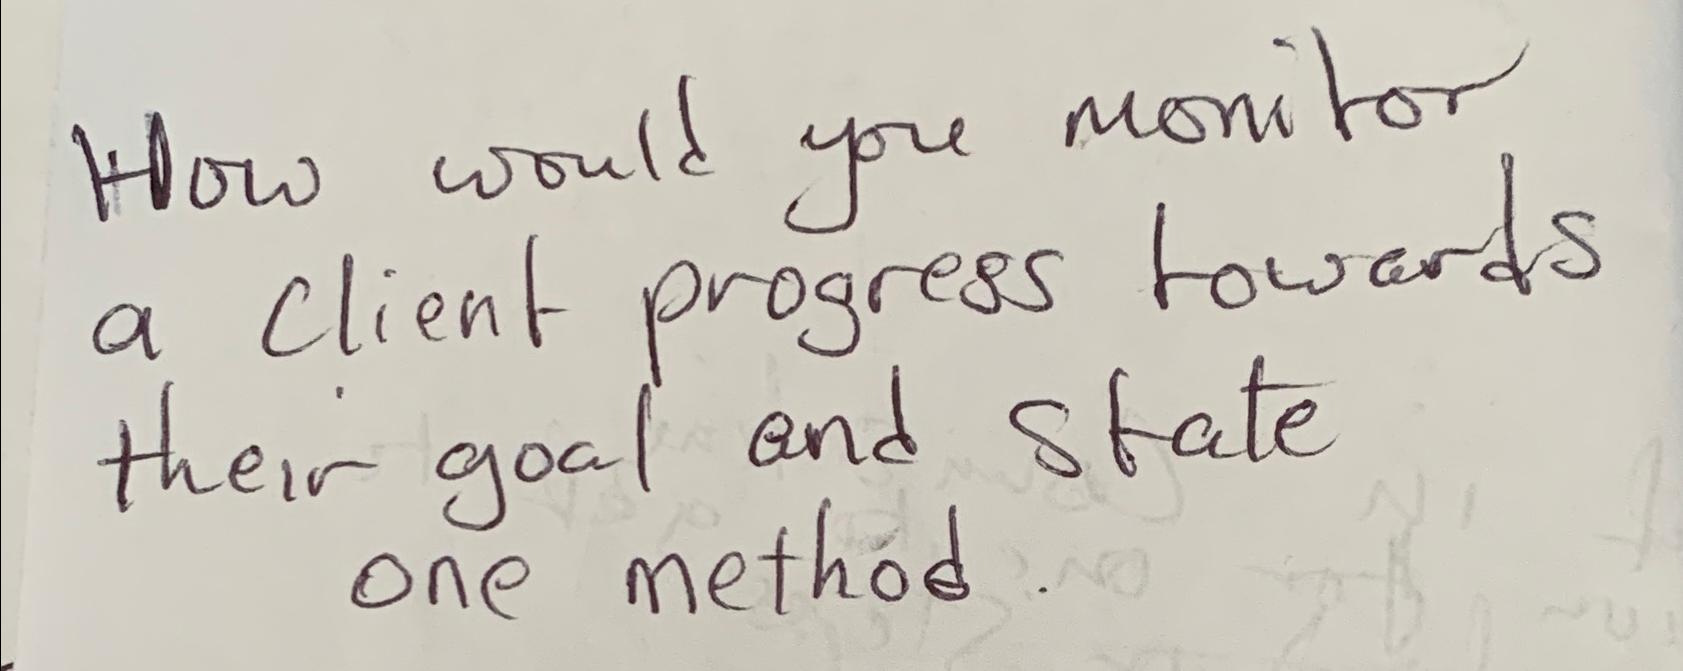 How would you monitor
a client progress towards
their goal and state
one method.